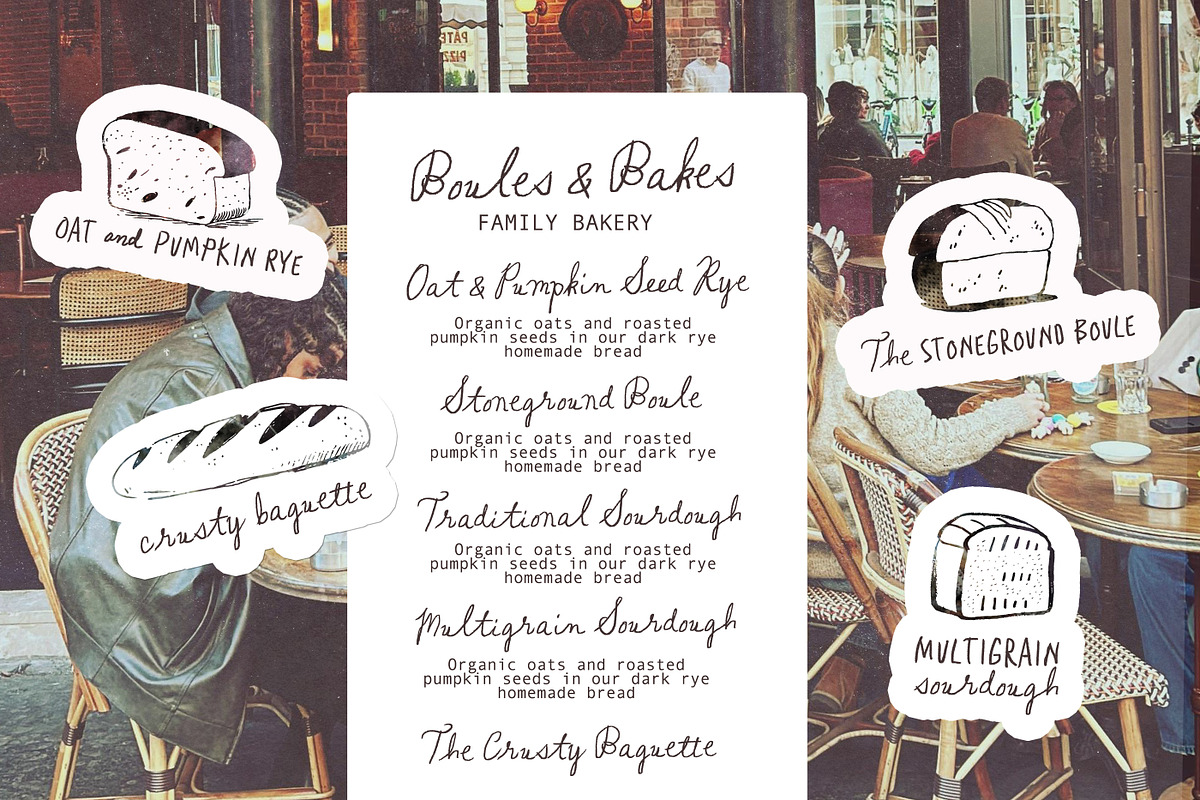 Boules & Bakes
FAMILY BAKERY
Oat & Pumpkin Seed Rye
Organic oats and roasted
pumpkin seeds in our dark rye
homemade bread
Stoneground Boule
Organic oats and roasted
pumpkin seeds in our dark rye
homemade bread
Traditional Sourdough
Organic oats and roasted
pumpkin seeds in our dark rye
homemade bread
Multigrain Sourdough
Organic oats and roasted
pumpkin seeds in our dark rye
homemade bread
The Crusty Baguette
OAT and PUMPKIN RYE
crusty baguette
The STONEGROUND BOULE
MULTIGRAIN
sourdough